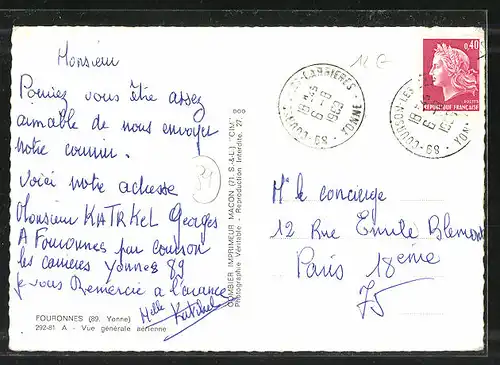 Monsieur
Pouriez vous être assez
aimable de nous envoyer
notre courrier.
Voici notre adresse
Monsieur KATRKEL Georges
A Fouronnes par courson
les carrieres Yonnes 89
je vous Remercie a l'avance
Katrkel
FOURONNES (89. Yonne)
292-81 A - Vue générale aérienne
COMBIER IMPRIMEUR MACON (71. S.-&-L.) "CIM"
Photographie Véritable - Reproduction Interdite. 27.
12 €
COURSON-LES-CARRIERES
6-8
1969
89 YONNE
0,40
REPUBLIQUE FRANÇAISE
COURSON-LES
6-8
1969
89 YON
Me le concierge
12 Rue Emile Blemont
Paris 18ème
75